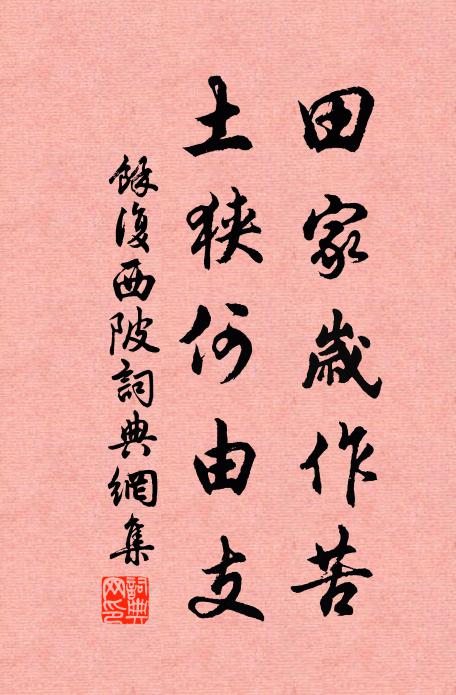 田家歲作苦
土狹何由支
餘復西陂詞典網集
詞典網印